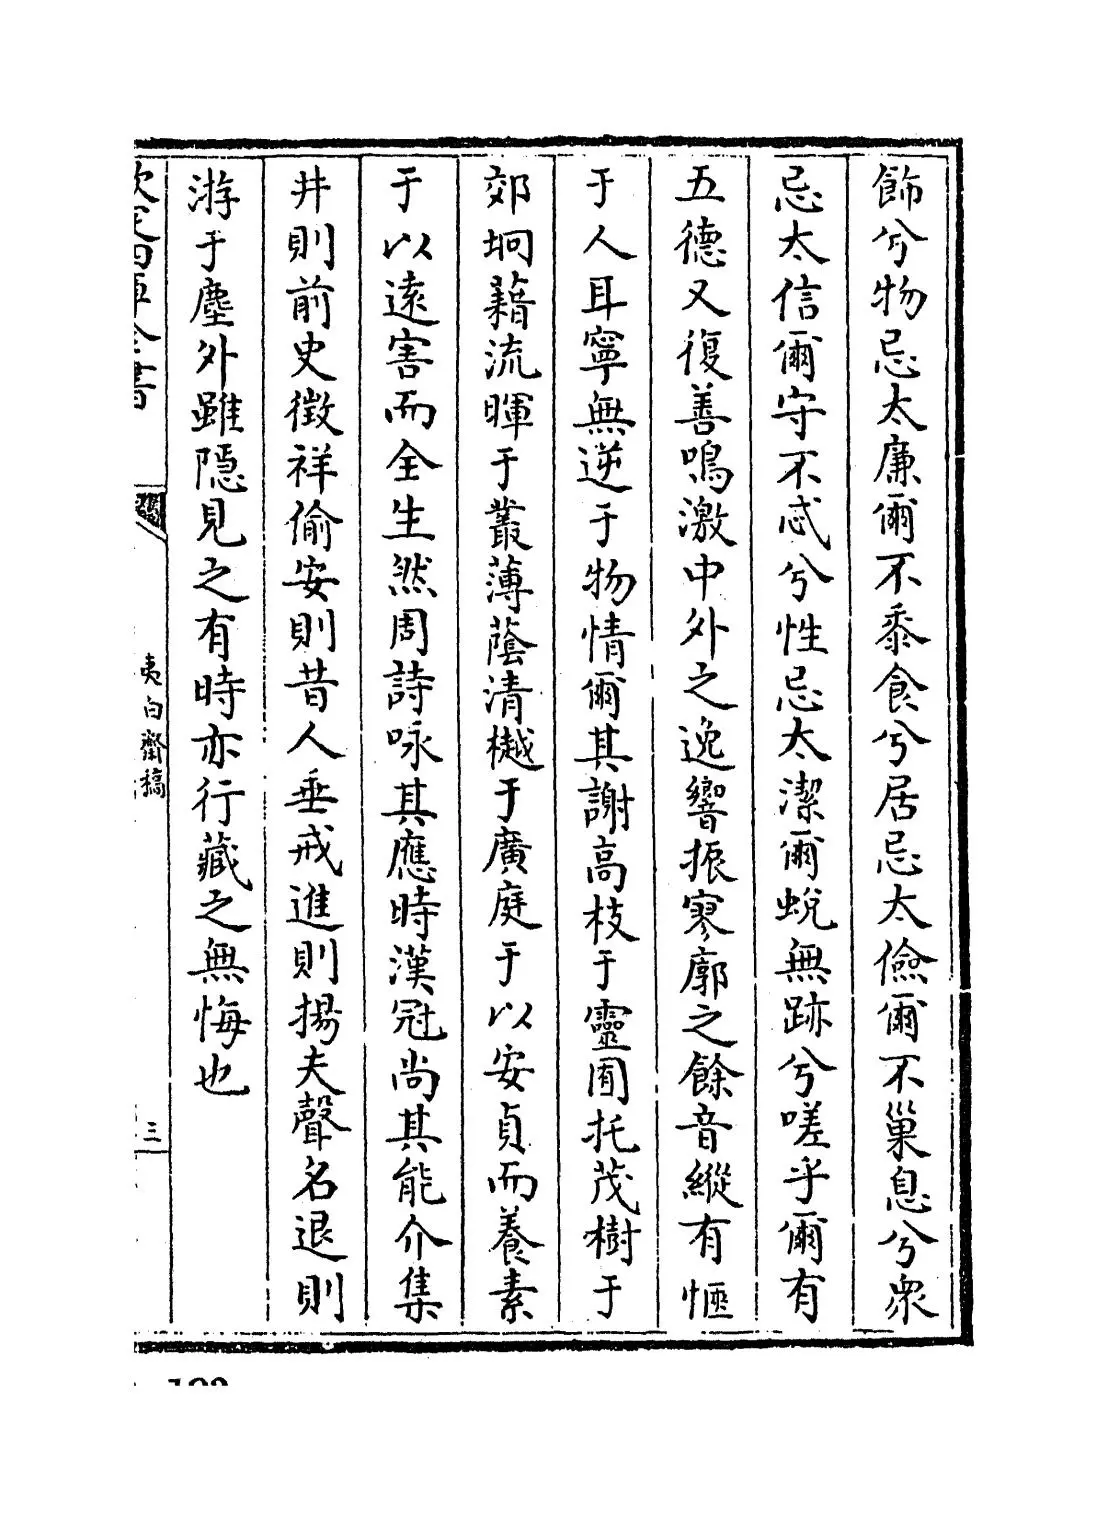 飾兮物忌太廉爾不黍食兮居忌太儉爾不巢息兮衆
忌太信爾守不忒兮性忌太潔爾蛻無跡兮嗟乎爾有
五德又復善鳴激中外之逸響振寥廓之餘音縱有愜
于人耳寧無逆于物情爾其謝高枝于靈囿托茂樹于
郊坰藉流暉于叢薄蔭清樾于廣庭于以安貞而養素
于以遠害而全生然周詩咏其應時漢冠尚其能介集
井則前史徵祥偷安則昔人垂戒進則揚夫聲名退則
游于塵外雖隱見之有時亦行藏之無悔也
欽定四庫全書
夷白齋稿
三